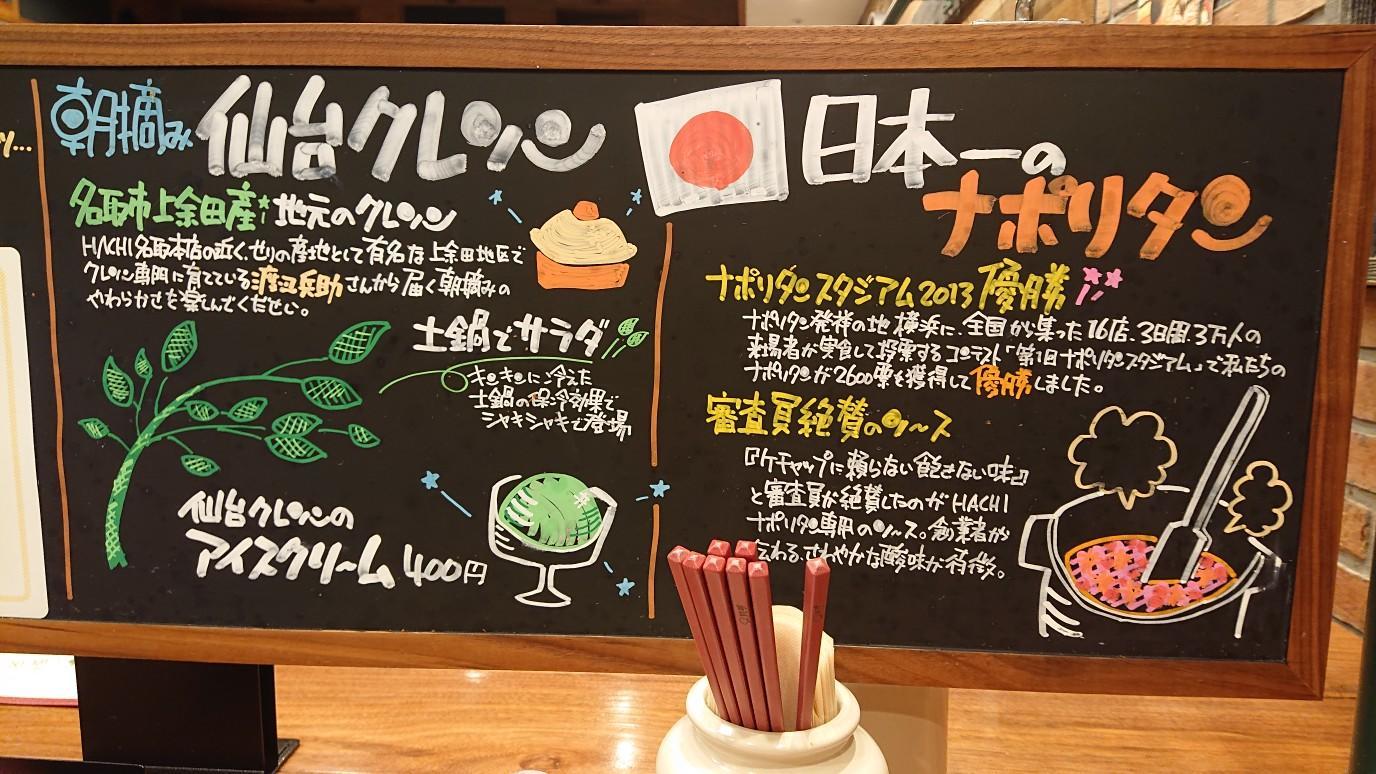 朝摘み 仙台クレソン
名取市上余田産 地元のクレソン
HACHI名取本店の近く、せりの産地として有名な上余田地区で
クレソン専門に育てている渡辺兵助さんから届く朝摘みの
やわらかさを楽しんでください。
土鍋でサラダ
キンキンに冷えた
土鍋の保冷効果で
シャキシャキで登場
仙台クレソンの
アイスクリーム 400円
日本一の
ナポリタン
ナポリタンスタジアム2013優勝
ナポリタン発祥の地 横浜に、全国から集った16店、3日間、3万人の
来場者が実食して投票するコンテスト「第1回ナポリタンスタジアム」で私たちの
ナポリタンが2600票を獲得して優勝しました。
審査員絶賛のソース
『ケチャップに頼らない飽きない味』
と審査員が絶賛したのがHACHI
ナポリタン専用のソース。創業者が
伝わる、さわやかな酸味が特徴。